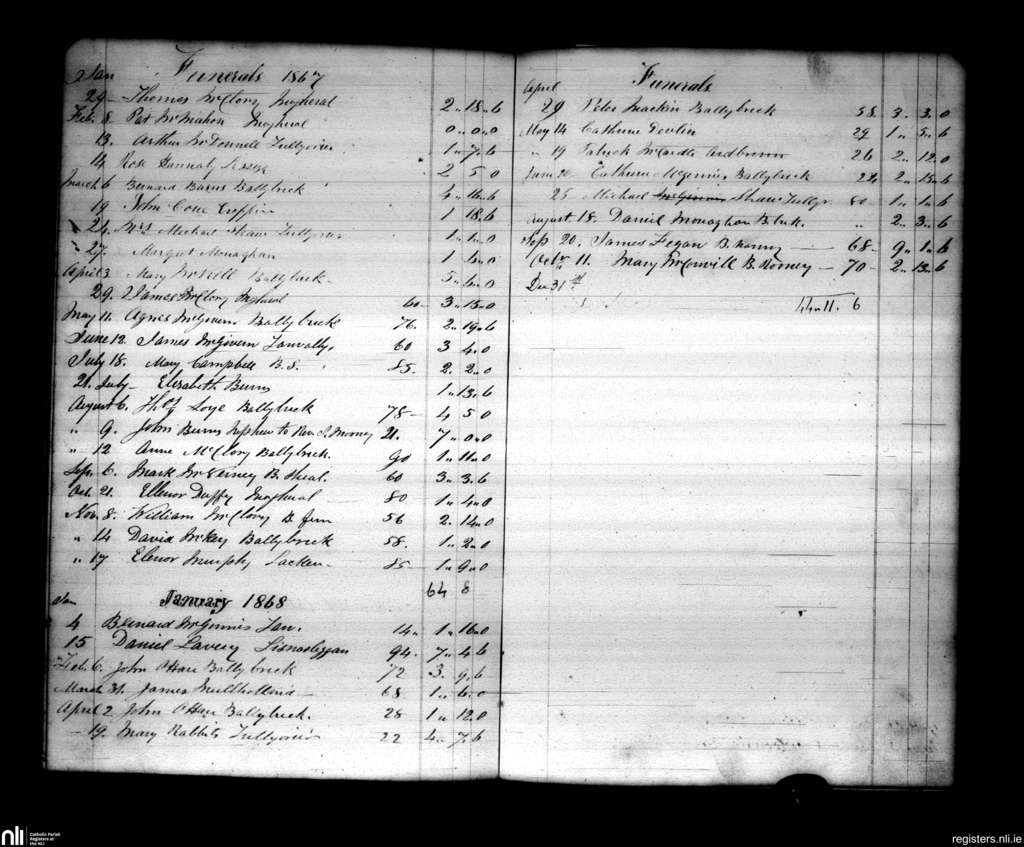 Jan Funerals 1867
29 Thomas McClory Ingheral 2 " 18 " 6
Feb. 8 Pat McMahon 0 " 0 " 0
13. Arthur McDonnell 1 " 7 " 6
14 Rose Hannah 2 5 0
March 6 Bernard Burns Ballybrick
19 John 1 18 6
24. Mrs Michael Shaw 1 " 1 " 0
" 27. Margret Monaghan 1 " 6 " 0
April 3 Mary McNeill Ballybrick 5 " 6 " 0
29. James McClory 60 3 " 15 " 0
May 11. Agnes McGivern Ballybrick 76. 2 " 19 " 6
June 12. James McGivern 60 3 4. 0
July 18. Mary Campbell B. S. 85. 2. 2 " 0
21. July Elisabeth Burns 1 " 13. 6
August 6. Thos Loye Ballybrick 78 4 5 0
" 9. John Burns Nephew to Rev. J. Mooney 21. 7 " 0 " 0
" 12 Anne McClory Ballybrick. 90 1 " 11 " 0
Sep. 6. Mark McVerney B. 60 3 " 3. 6
Oct. 21. Ellenor Duffy 80 1 " 4 " 0
Nov. 8. William McClory B. 56 2. 14 " 0
" 14 David McKey Ballybrick 58. 1 " 2 " 0
" 17 Elenor Murphy Lacken 85 1 " 9 " 0
64 8
Jan January 1868
4 Bernard McGennis 14 " 1 " 16 " 0
15 Daniel Lavery 94. 7 " 4. 6
Feb. 6. John O'Hare Ballybrick 72 3. 9. 6
March 31. James Mullholland 68 1 " 6. 0
April 2 John O'Hare Ballybrick. 28 1 " 12. 0
19. Mary Rabbits 22 4 " 7. 6
April Funerals
29 Peter Mackin Ballybrick 58. 3. 3. 0
May 14 Catherine Devlin 29 1 " 5 " 6
" 19 Patrick McCardle 26 2 " 12. 0
June Catherine Ballybrick 24 2 " 15. 6
25 Michael Shaw 80 1 " 1 " 6
August 18. Daniel Monaghan B. brick. " 2 " 3 " 6
Sep 20. James Fegan B. 68 9. 1 " 6
Octr 11. Mary B. Rooney 70 2 " 13 " 6
Dec 31st
11. 6
nli
Catholic Parish
Registers at
the NLI
registers.nli.ie